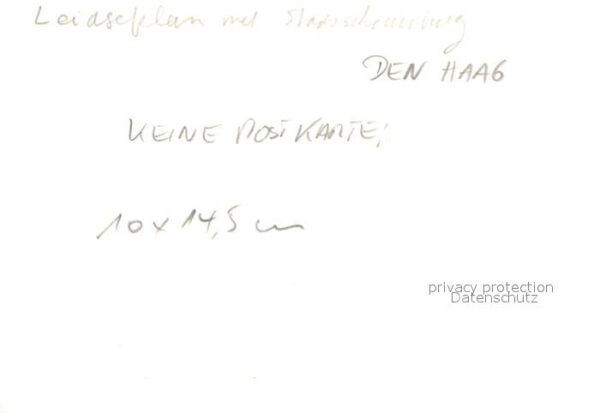 Leidseplein met Stadsschouwburg
DEN HAAG
KEINE POSTKARTE;
10 x 14,5 cm
privacy protection
Datenschutz